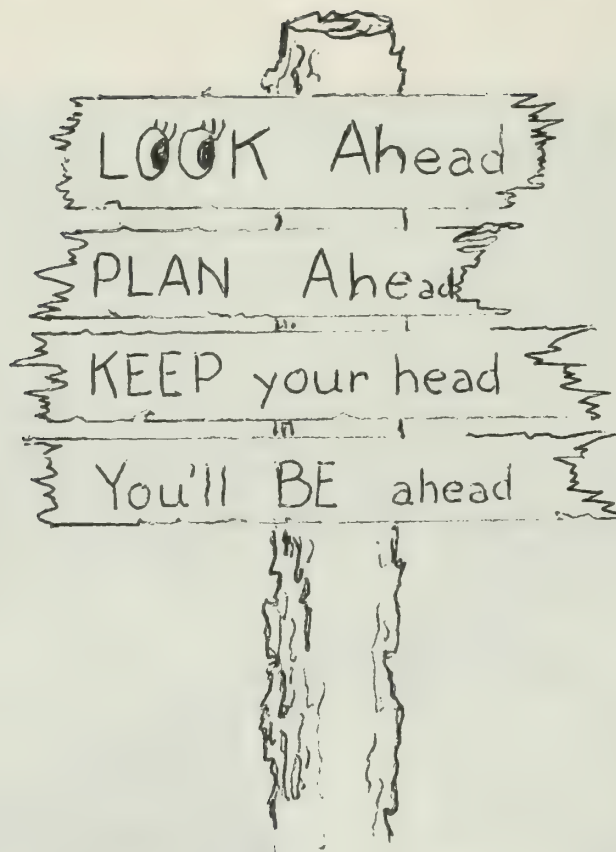 LOOK Ahead
PLAN Ahead
KEEP your head
You'll BE ahead